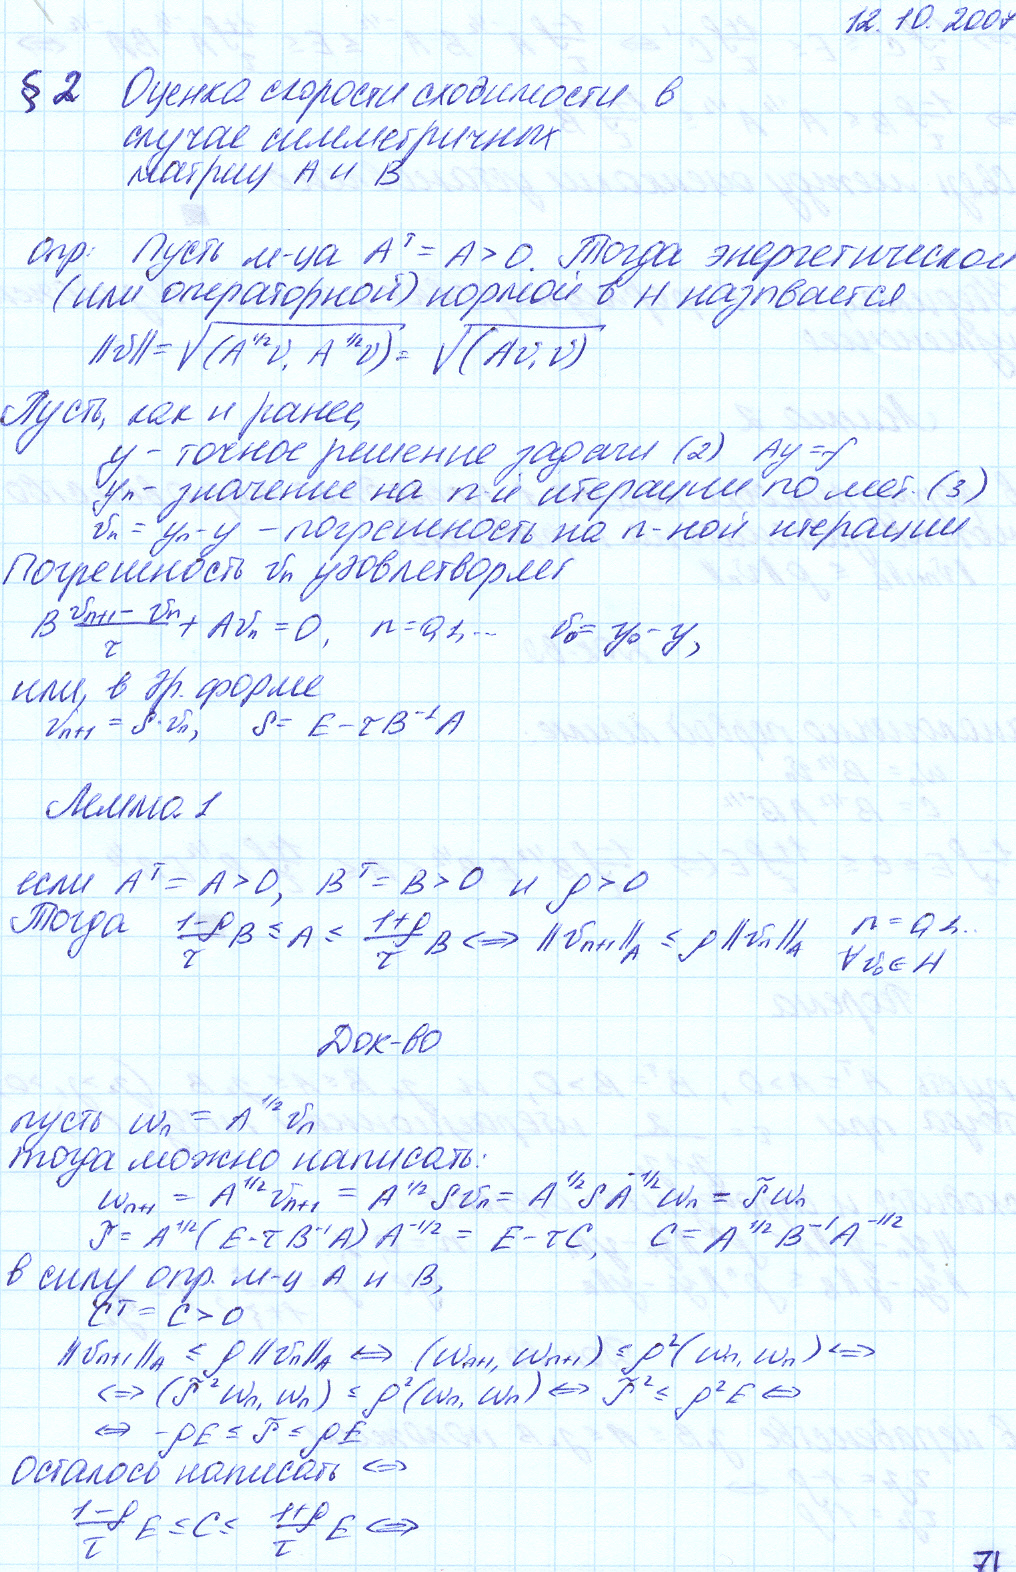 12.10.2007
§2 Оценка скорости сходимости в
случае симметричных
матриц A и B
опр: Пусть м-ца Aᵀ = A > 0. Тогда энергетической
(или операторной) нормой в H называется
||v|| = √(A^{1/2}v, A^{1/2}v) = √(Av, v)
Пусть, как и ранее,
y – точное решение задачи (2) Ay = f
yₙ – значение на n-й итерации по мет. (3)
vₙ = yₙ - y – погрешность на n-ной итерации
Погрешность vₙ удовлетворяет
B (vₙ₊₁ - vₙ)/τ + Avₙ = 0, n = 0,1,... v₀ = y₀ - y,
или, в др. форме
vₙ₊₁ = S·vₙ, S = E - τB⁻¹A
Лемма 1
если Aᵀ = A > 0, Bᵀ = B > 0 и ρ > 0
Тогда (1-ρ)/τ B ≤ A ≤ (1+ρ)/τ B ⟺ ||vₙ₊₁||_A ≤ ρ||vₙ||_A n = 0,1...
∀v₀ ∈ H
Док-во
пусть wₙ = A^{1/2}vₙ
тогда можно написать:
wₙ₊₁ = A^{1/2}vₙ₊₁ = A^{1/2}Svₙ = A^{1/2}SA^{-1/2}wₙ = S̃wₙ
S̃ = A^{1/2}(E - τB⁻¹A)A^{-1/2} = E - τC, C = A^{1/2}B⁻¹A^{-1/2}
в силу опр. м-ц A и B,
Cᵀ = C > 0
||vₙ₊₁||_A ≤ ρ||vₙ||_A ⟺ (wₙ₊₁, wₙ₊₁) ≤ ρ²(wₙ, wₙ) ⟺
⟺ (S̃²wₙ, wₙ) ≤ ρ²(wₙ, wₙ) ⟺ S̃² ≤ ρ²E ⟺
⟺ -ρE ≤ S̃ ≤ ρE
Осталось написать ⟺
(1-ρ)/τ E ≤ C ≤ (1+ρ)/τ E ⟺
71